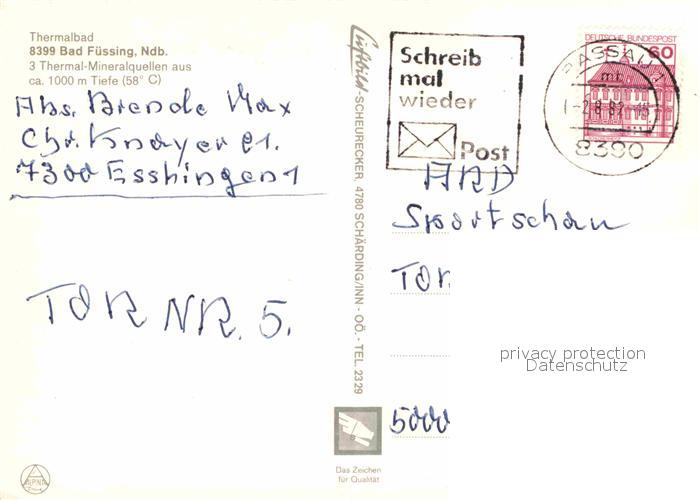 Thermalbad
8399 Bad Füssing, Ndb.
3 Thermal-Mineralquellen aus
ca. 1000 m Tiefe (58° C)
Abs. Brende Max
Chr. Knayer
7300 Esslingen 1
TOR NR. 5.
Luftbild-SCHEURECKER, 4780 SCHÄRDING/INN - OÖ. - TEL. 2329
Schreib
mal
wieder
Post
DEUTSCHE BUNDESPOST
60
PASSAU 1
8390
ARD
Sportschau
TOR
5000
privacy protection
Datenschutz
Das Zeichen
für Qualität